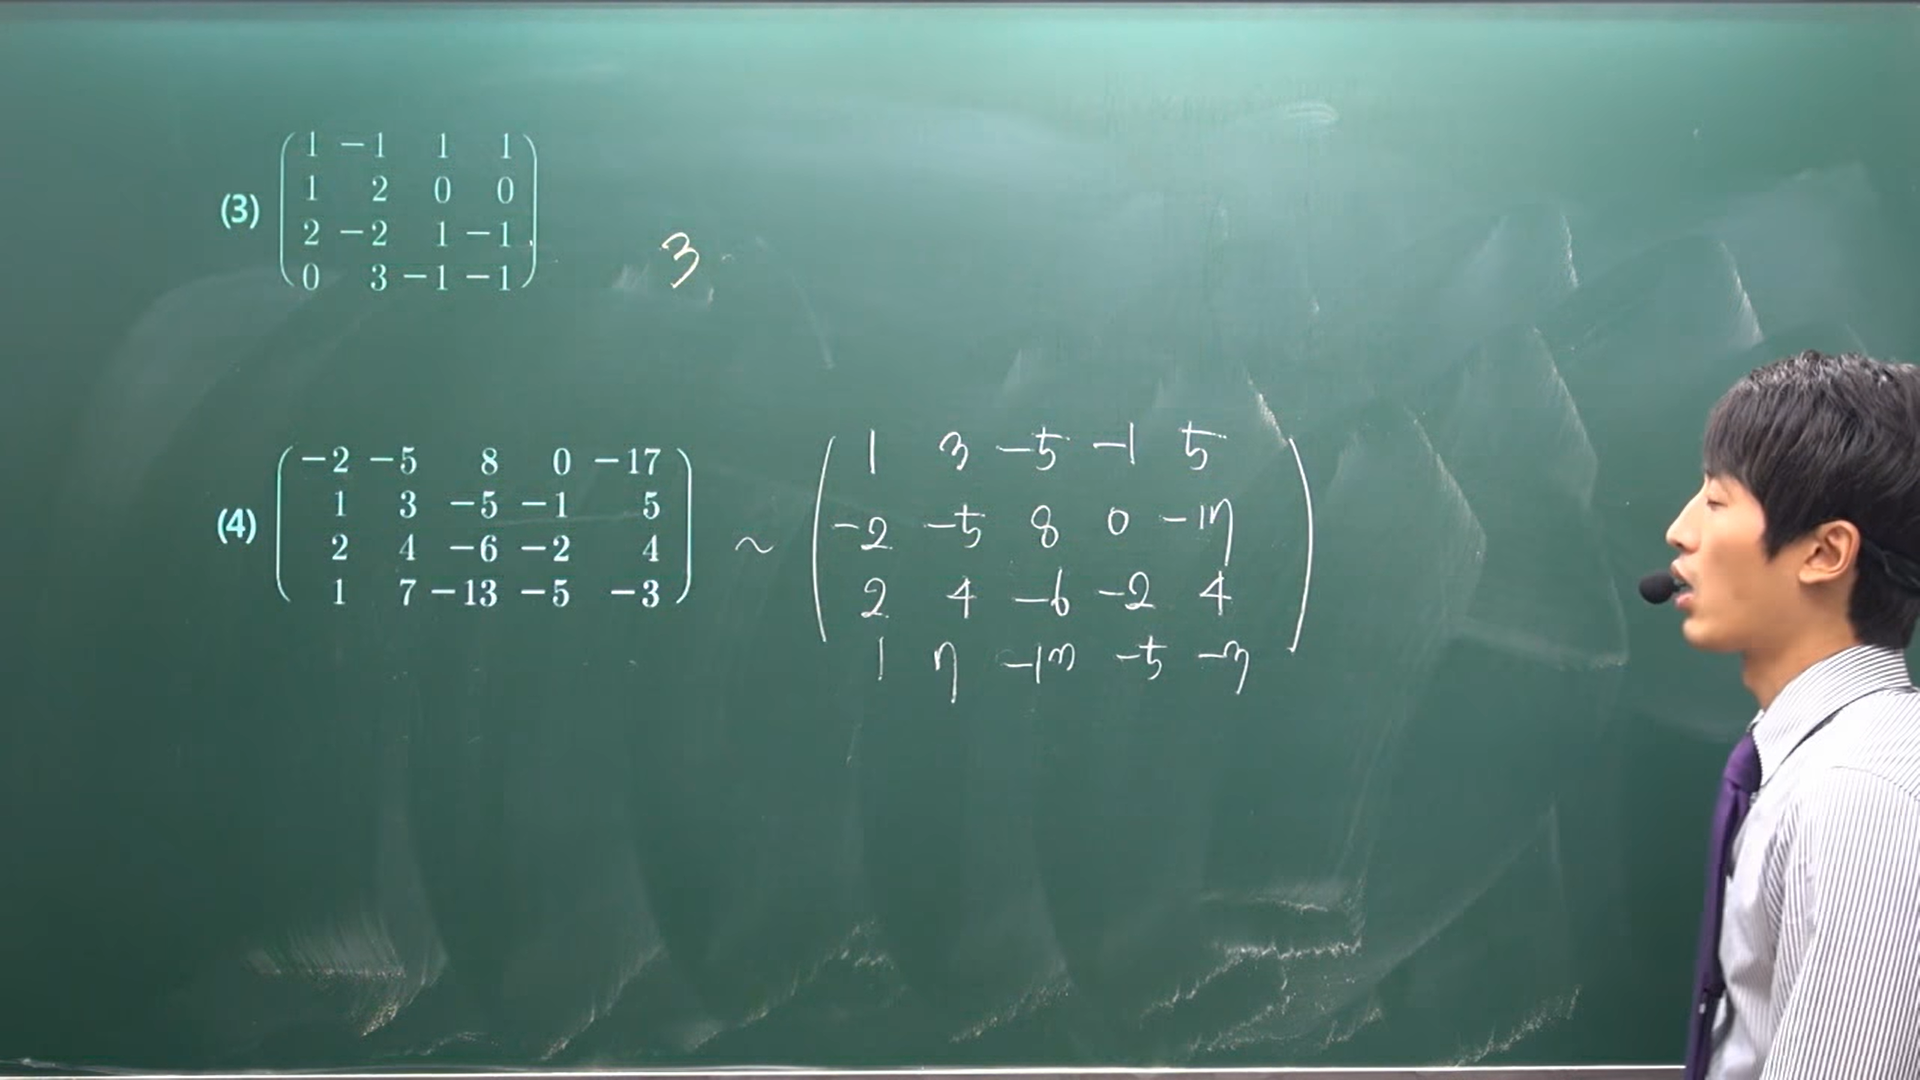 (3)
1 −1 1 1
1 2 0 0
2 −2 1 −1
0 3 −1 −1
3
(4)
−2 −5 8 0 −17
1 3 −5 −1 5
2 4 −6 −2 4
1 7 −13 −5 −3
~
1 3 −5 −1 5
−2 −5 8 0 −17
2 4 −6 −2 4
1 7 −13 −5 −3